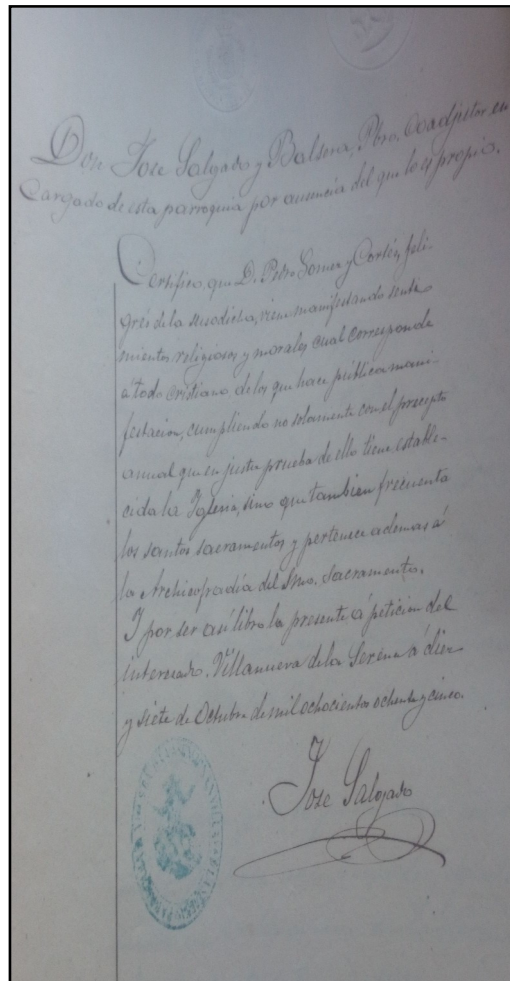 Don Jose Salgado y Balsera, Pbro. Coadjutor en
Cargado de esta parroquia por ausencia del que lo es propio.
Certifico, que D. Pedro Gomez y Cortés, feli-
grés de la susodicha, viene manifestando senti-
mientos religiosos y morales cual corresponde
a todo cristiano de los que hace pública mani-
festacion, cumpliendo no solamente con el precepto
annual que en justa prueba de ello tiene estable-
cida la Iglesia, sino que tambien frecuenta
los santos sacramentos y pertenece ademas á
la Archicofradía del Smo. Sacramento.
Y por ser así libro la presente á peticion del
interesado. Villanueva de la Serena á diez
y siete de Octubre de mil ochocientos ochenta y cinco.
Jose Salgado